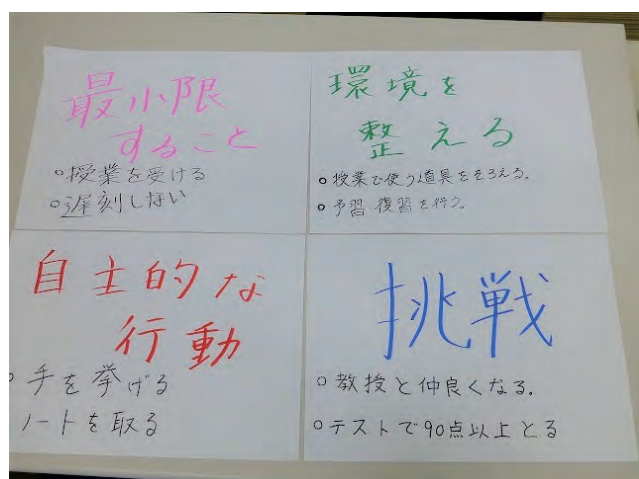 最小限
すること
○授業を受ける
○遅刻しない
環境を
整える
○授業で使う道具をそろえる。
○予習 復習を行う。
自主的な
行動
○手を挙げる
ノートを取る
挑戦
○教授と仲良くなる。
○テストで90点以上とる